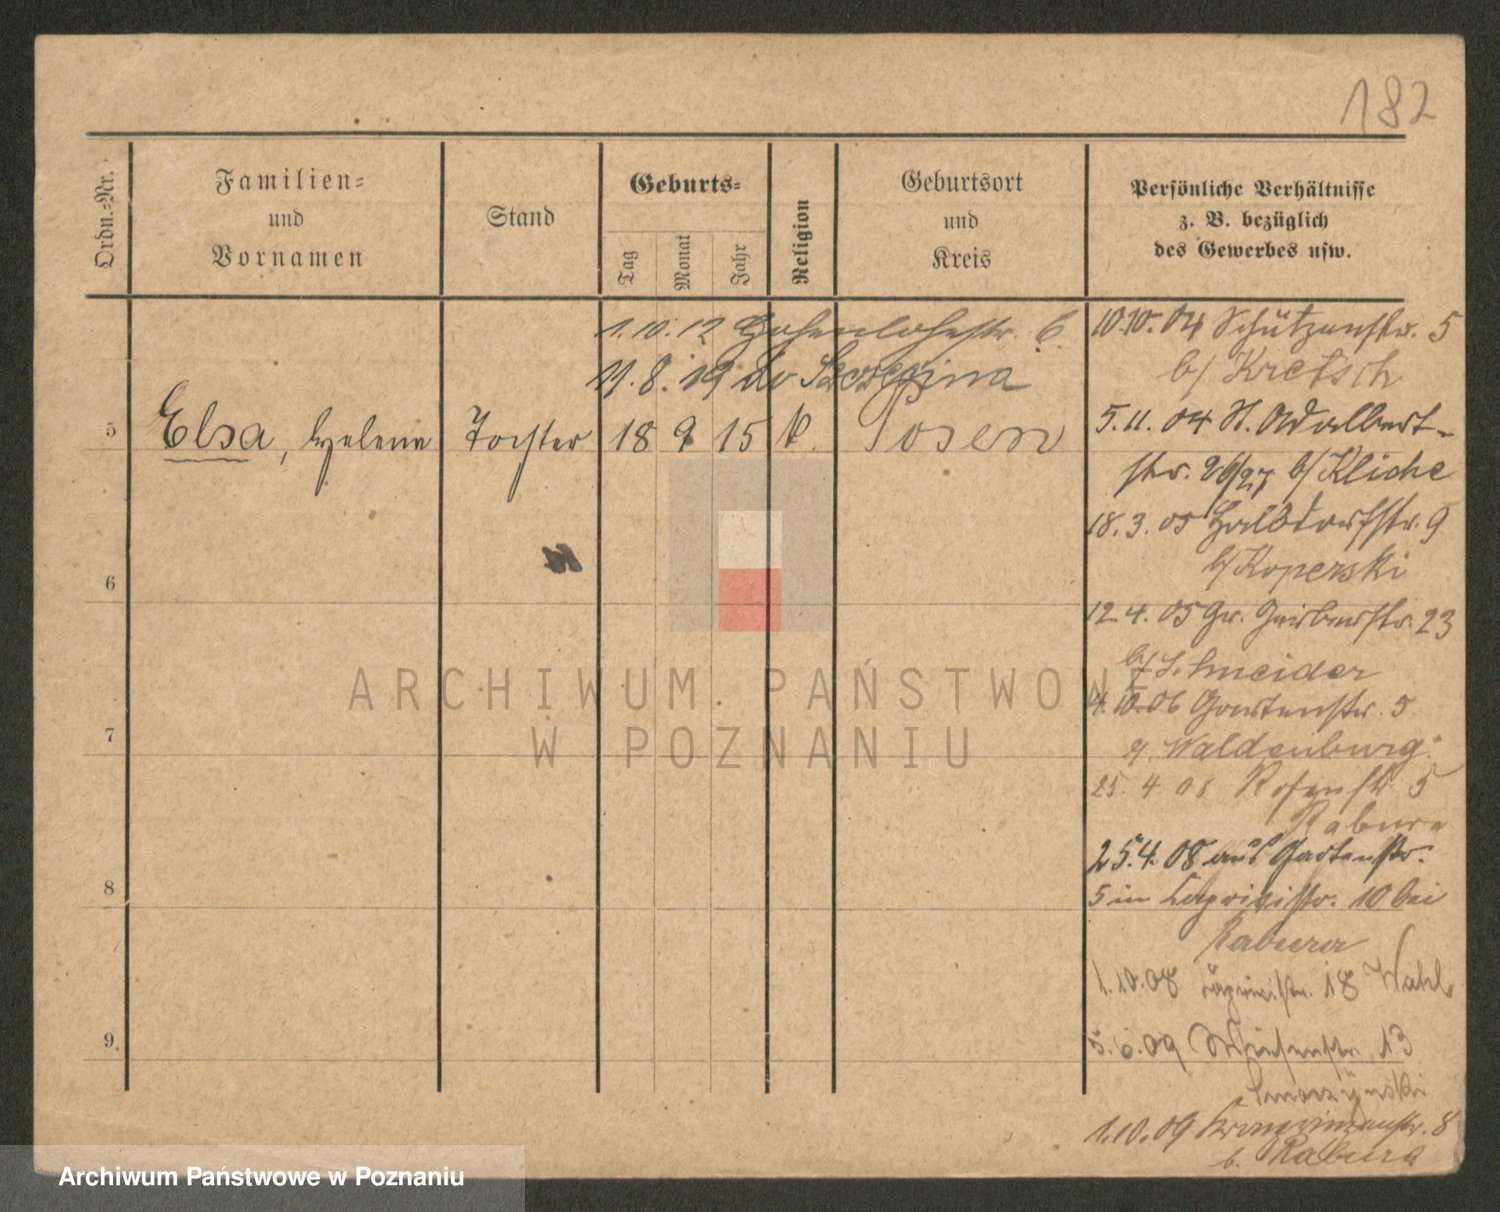 182
Ordn.-Nr.
Familien-
und
Vornamen
Stand
Geburts-
Tag
Monat
Jahr
Religion
Geburtsort
und
Kreis
Persönliche Verhältnisse
z. B. bezüglich
des Gewerbes usw.
1.10.12 Hohenlohestr. 6.
11.8.19
5 Elsa, Helene Tochter 18 9 15 k. Posen
6
7
8
9
10.10.04 Schützenstr. 5
b/ Kretsch
5.11.04 St. Adalbert-
str. 26/27 b/ Kliche
18.3.05 Halbdorfstr. 9
b/ Koperski
12.4.05 Gr. Gerberstr. 23
b/ Schneider
4.10.06 Gartenstr. 5
Waldenburg
25.4.08 Rosenstr. 5
Rabura
25.4.08 aus Gartenstr.
5 in Caprivistr. 10 bei
Rabura
1.10.08 Caprivistr. 18 Wahls
5.6.09 Wiesenstr. 13
Smoczynski
1.10.09 Kronprinzenstr. 8
b. Rabura
ARCHIWUM PAŃSTWOWE
W POZNANIU
Archiwum Państwowe w Poznaniu